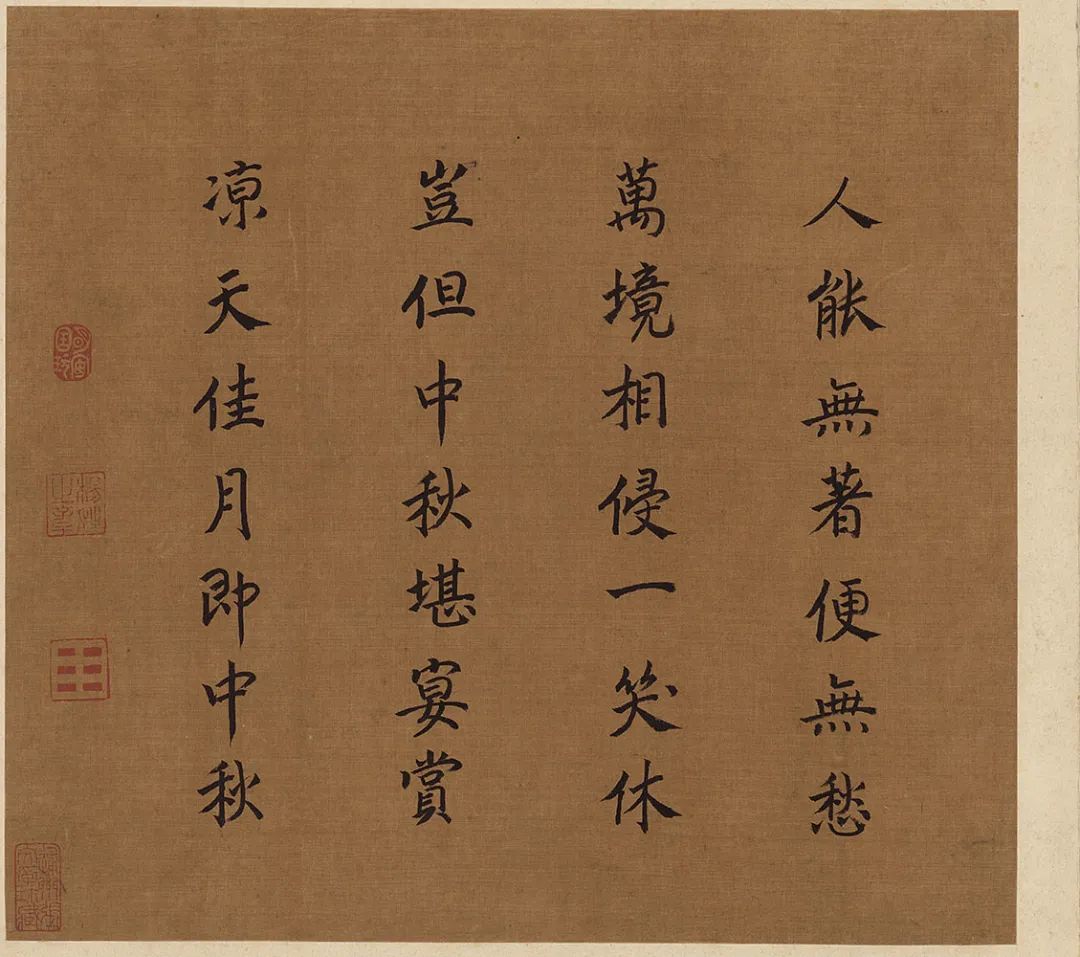 人能無著便無愁
萬境相侵一笑休
豈但中秋堪宴賞
凉天佳月即中秋